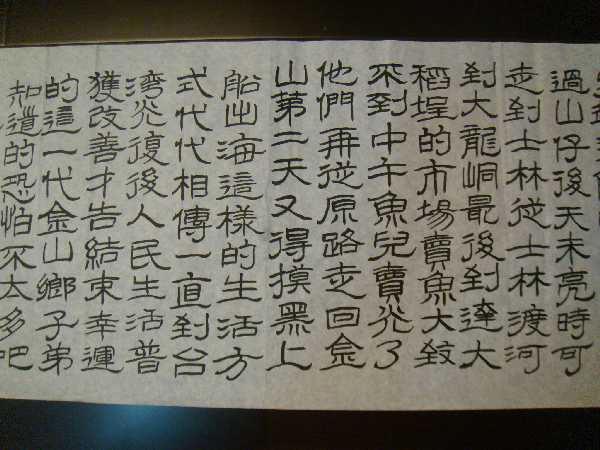 過山仔後天未亮時可
走到士林從士林渡河
到大龍峒最後到達大
稻埕的市場賣魚大致
不到中午魚兒賣光了
他們再從原路走回金
山第二天又得摸黑上
船出海這樣的生活方
式代代相傳一直到台
湾光復後人民生活普
獲改善才告結束幸運
的這一代金山鄉子弟
知道的恐怕不太多吧